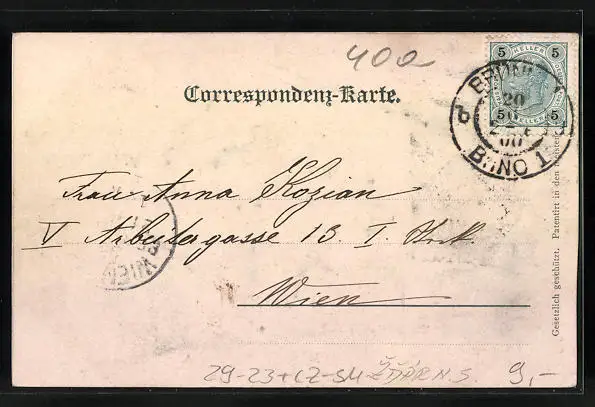 400
5 HELLER 5
5 HELLER 5
BRÜNN
20
00
BRNO 1
Correspondenz-Karte.
Frau Anna Kozian
V Arbeitergasse 13 I. Stock.
WIEN
Wien
Gesetzlich geschützt. Patentirt in den meisten
29-23+CZ-SM ŽĎÁR N.S. 9,-